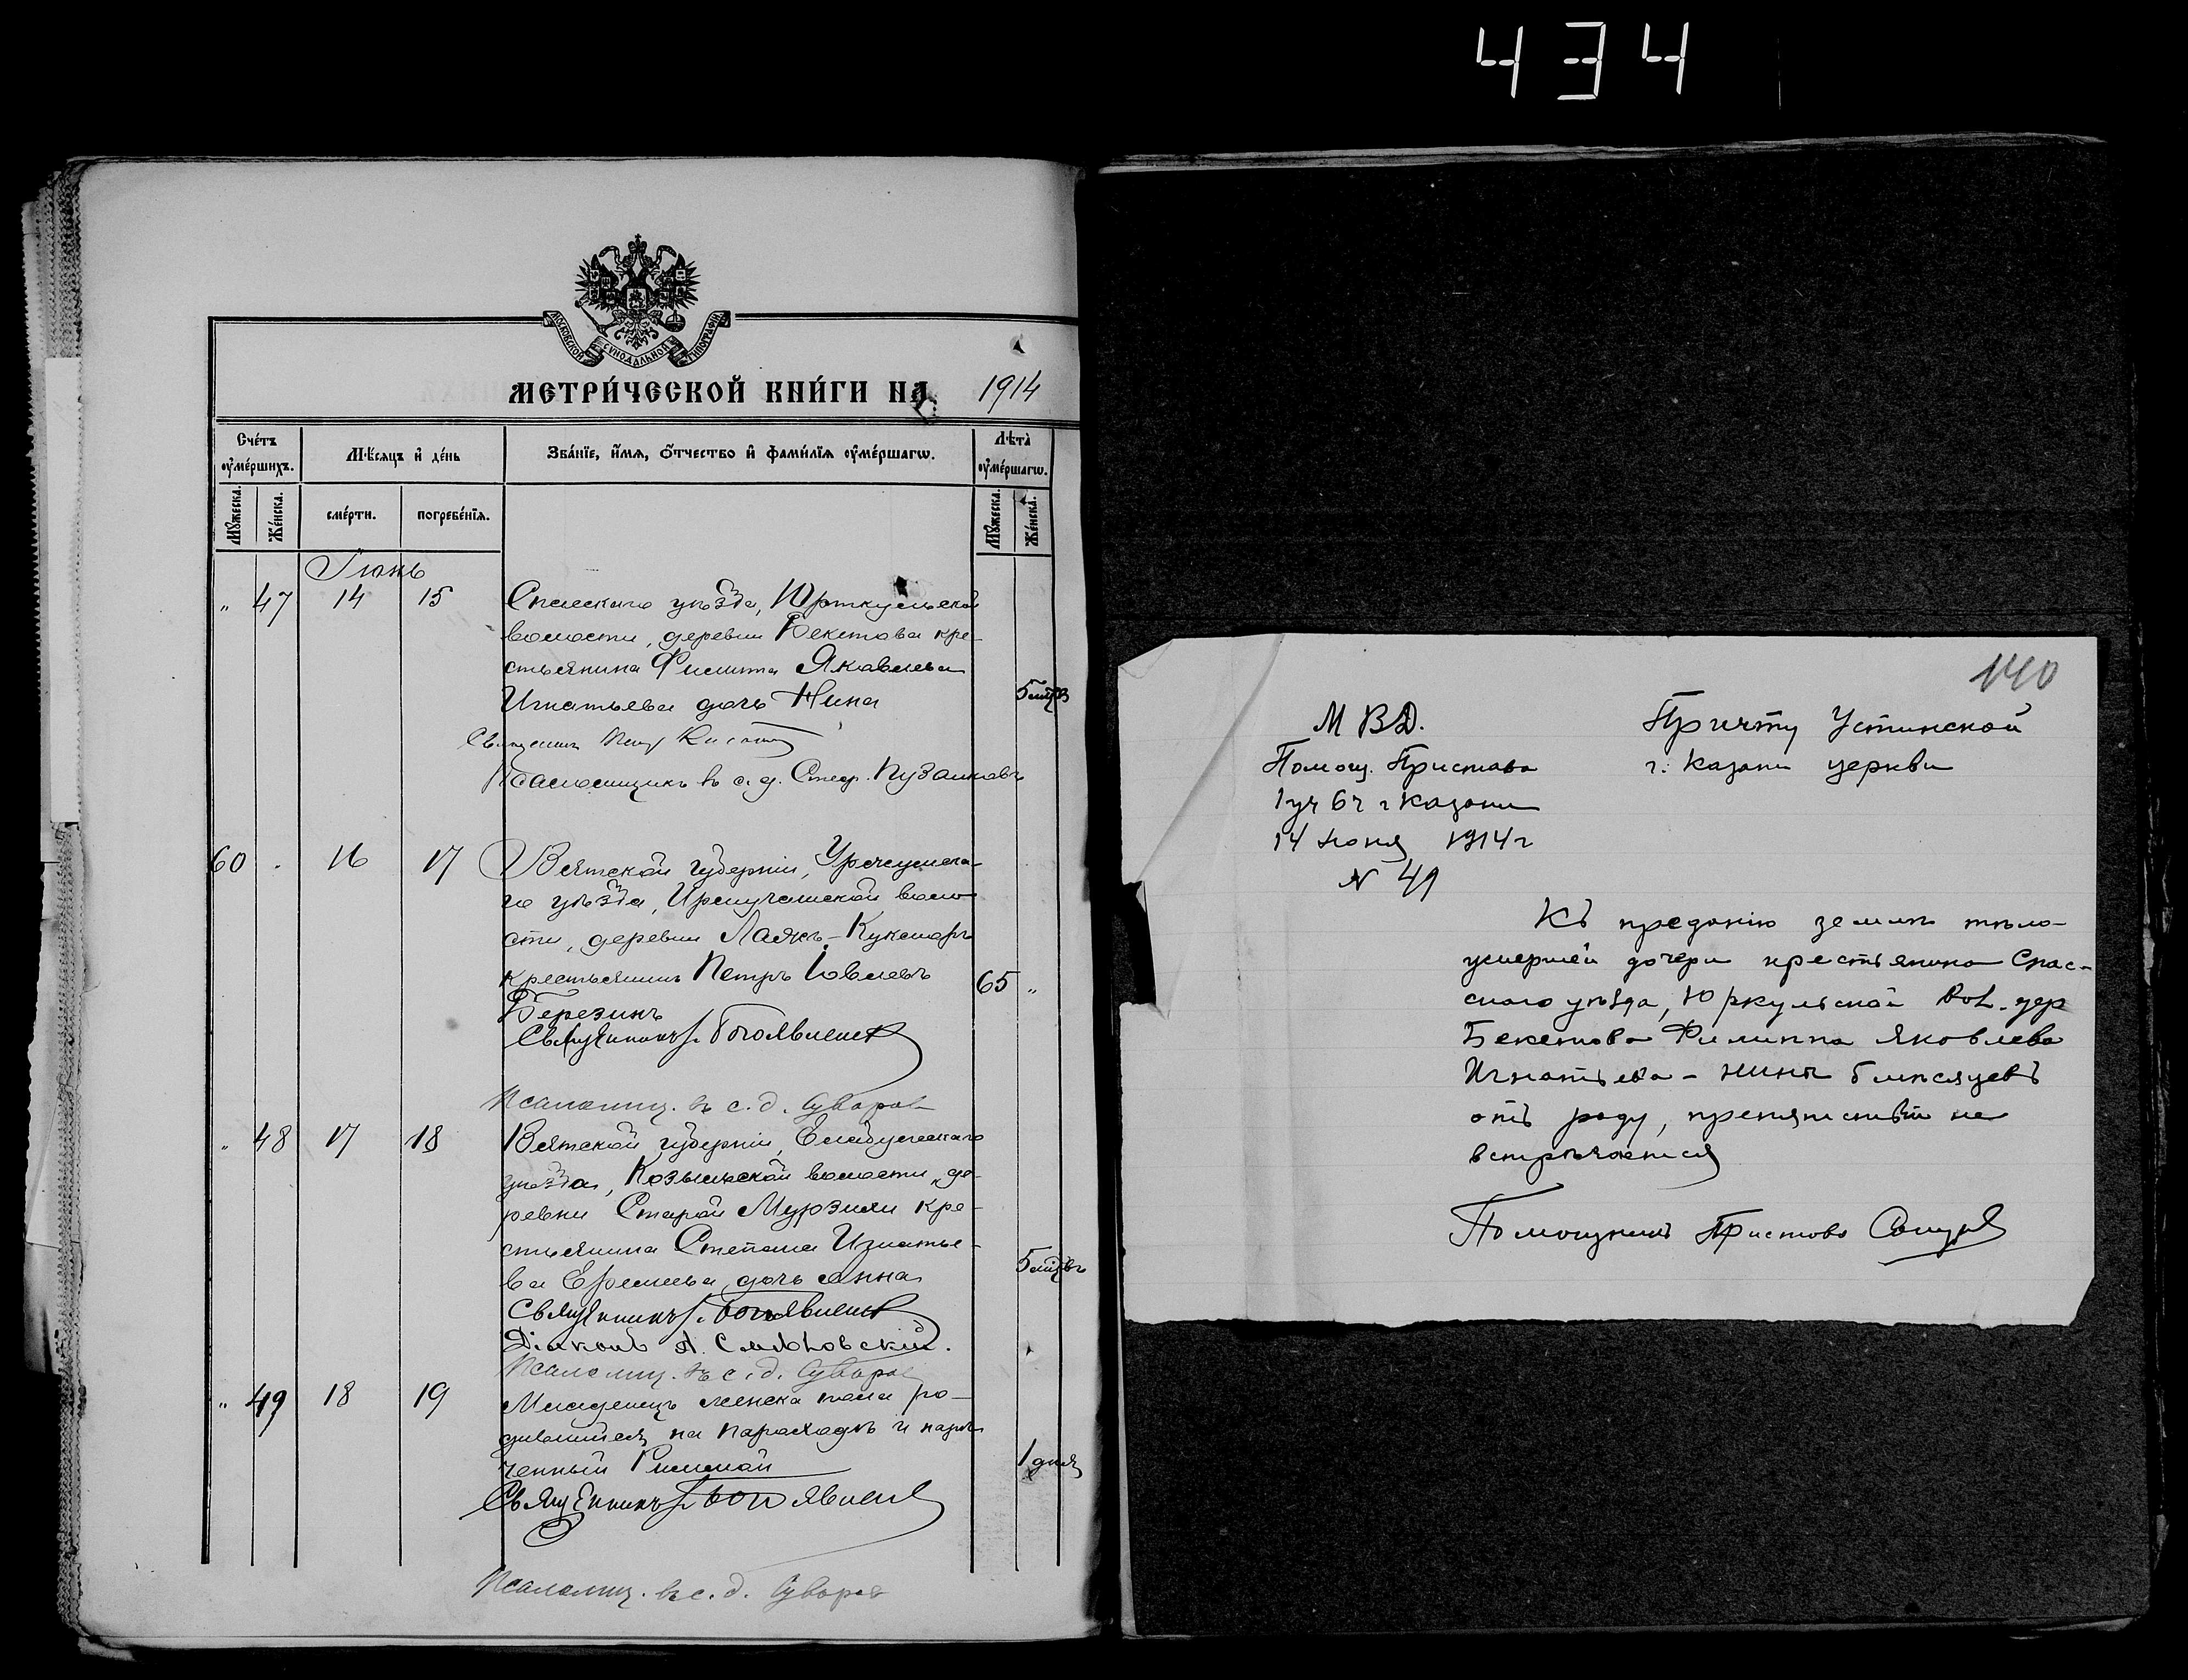 434
МОСКОВСКОЙ СУНОДАЛЬНОЙ ТИПОГРАФІИ
МЕТРИ́ЧЕСКОЙ КНИ́ГИ НА 1914
Сче́тъ ᲂу҆ме́ршихъ.
Мꙋ́жеска.
Же́нска.
Мѣ́сяцъ и҆ де́нь
сме́рти.
погребе́нїѧ.
Зва́нїе, и҆́мѧ, ѻ҆́тчество и҆ фами́лїѧ ᲂу҆ме́ршагѡ.
Лѣ́та ᲂу҆ме́ршагѡ.
Мꙋ́жеска.
Же́нска.
Іюнь
" 47 14 15
Спасскаго уѣзда, Юрткульской
волости, деревни Бекетова кре-
стьянина Филиппа Яковлева
Игнатьева дочь Нина
5 мцѣв
Священникъ
Псаломщикъ в с. д. Стеф. Пузанковъ
60 " 16 17
Вятской губерніи, Уржумска-
го уѣзда, Ирмучашской воло-
сти, деревни Лаякъ-Кукморъ
крестьянинъ Петръ Іовлевъ
65 "
Березинъ
Священникъ Богоявленск
Псаломщ. въ с. д. Суворов
" 48 17 18
Вятской губерніи, Елабужскаго
уѣзда, Козыльской волости, де-
ревни Старой Мурзихи кре-
стьянина Степана Игнатье-
ва Еремеева дочь Анна
5 мцѣвъ
Священникъ Богоявленск
Діаконъ А. Смѣловскій.
Псаломщ. въ с. д. Суворов
" 49 18 19
Младенецъ женска пола ро-
дившійся на пароходѣ и наре-
ченный Риммой
1 дня
Священникъ Богоявленск
Псаломщ. въ с. д. Суворов
140
М В Д.
Помощ. Пристава
1 уч 6 ч г Казани
14 Июня 1914 г
№ 49
Причту Устинской
г. Казани церкви
Къ преданію землѣ тѣла
умершей дочери крестьянина Спас-
скаго уѣзда, Юркульской вол. дер
Бекетова Филиппа Яковлева
Игнатьева - Нины 5 мѣсяцевъ
отъ роду, препятствій не
встрѣчается
Помощникъ Пристава